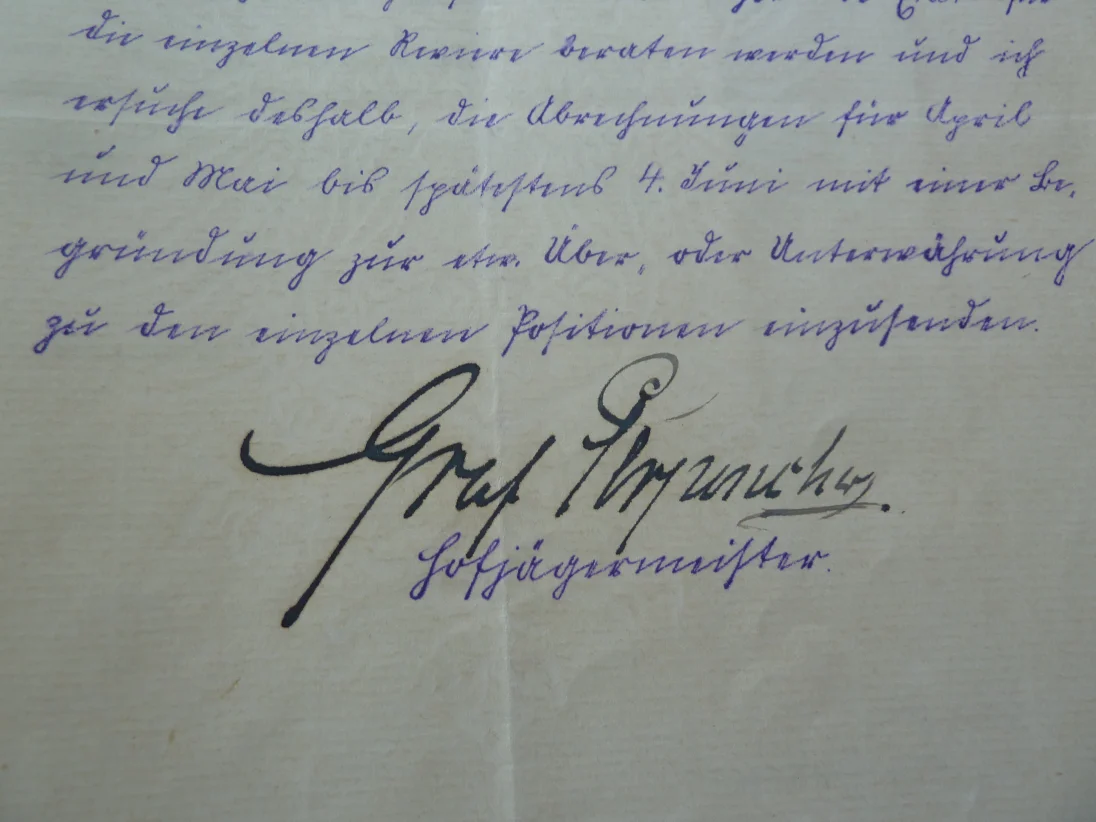 die einzelnen Reviere beraten werden und ich
ersuche deshalb, die Abrechnungen für April
und Mai bis spätestens 4. Juni mit einer Be,
gründung zur etw. Über, oder Unterwährung
zu den einzelnen Positionen einzusenden.
Graf
Hofjägermeister.